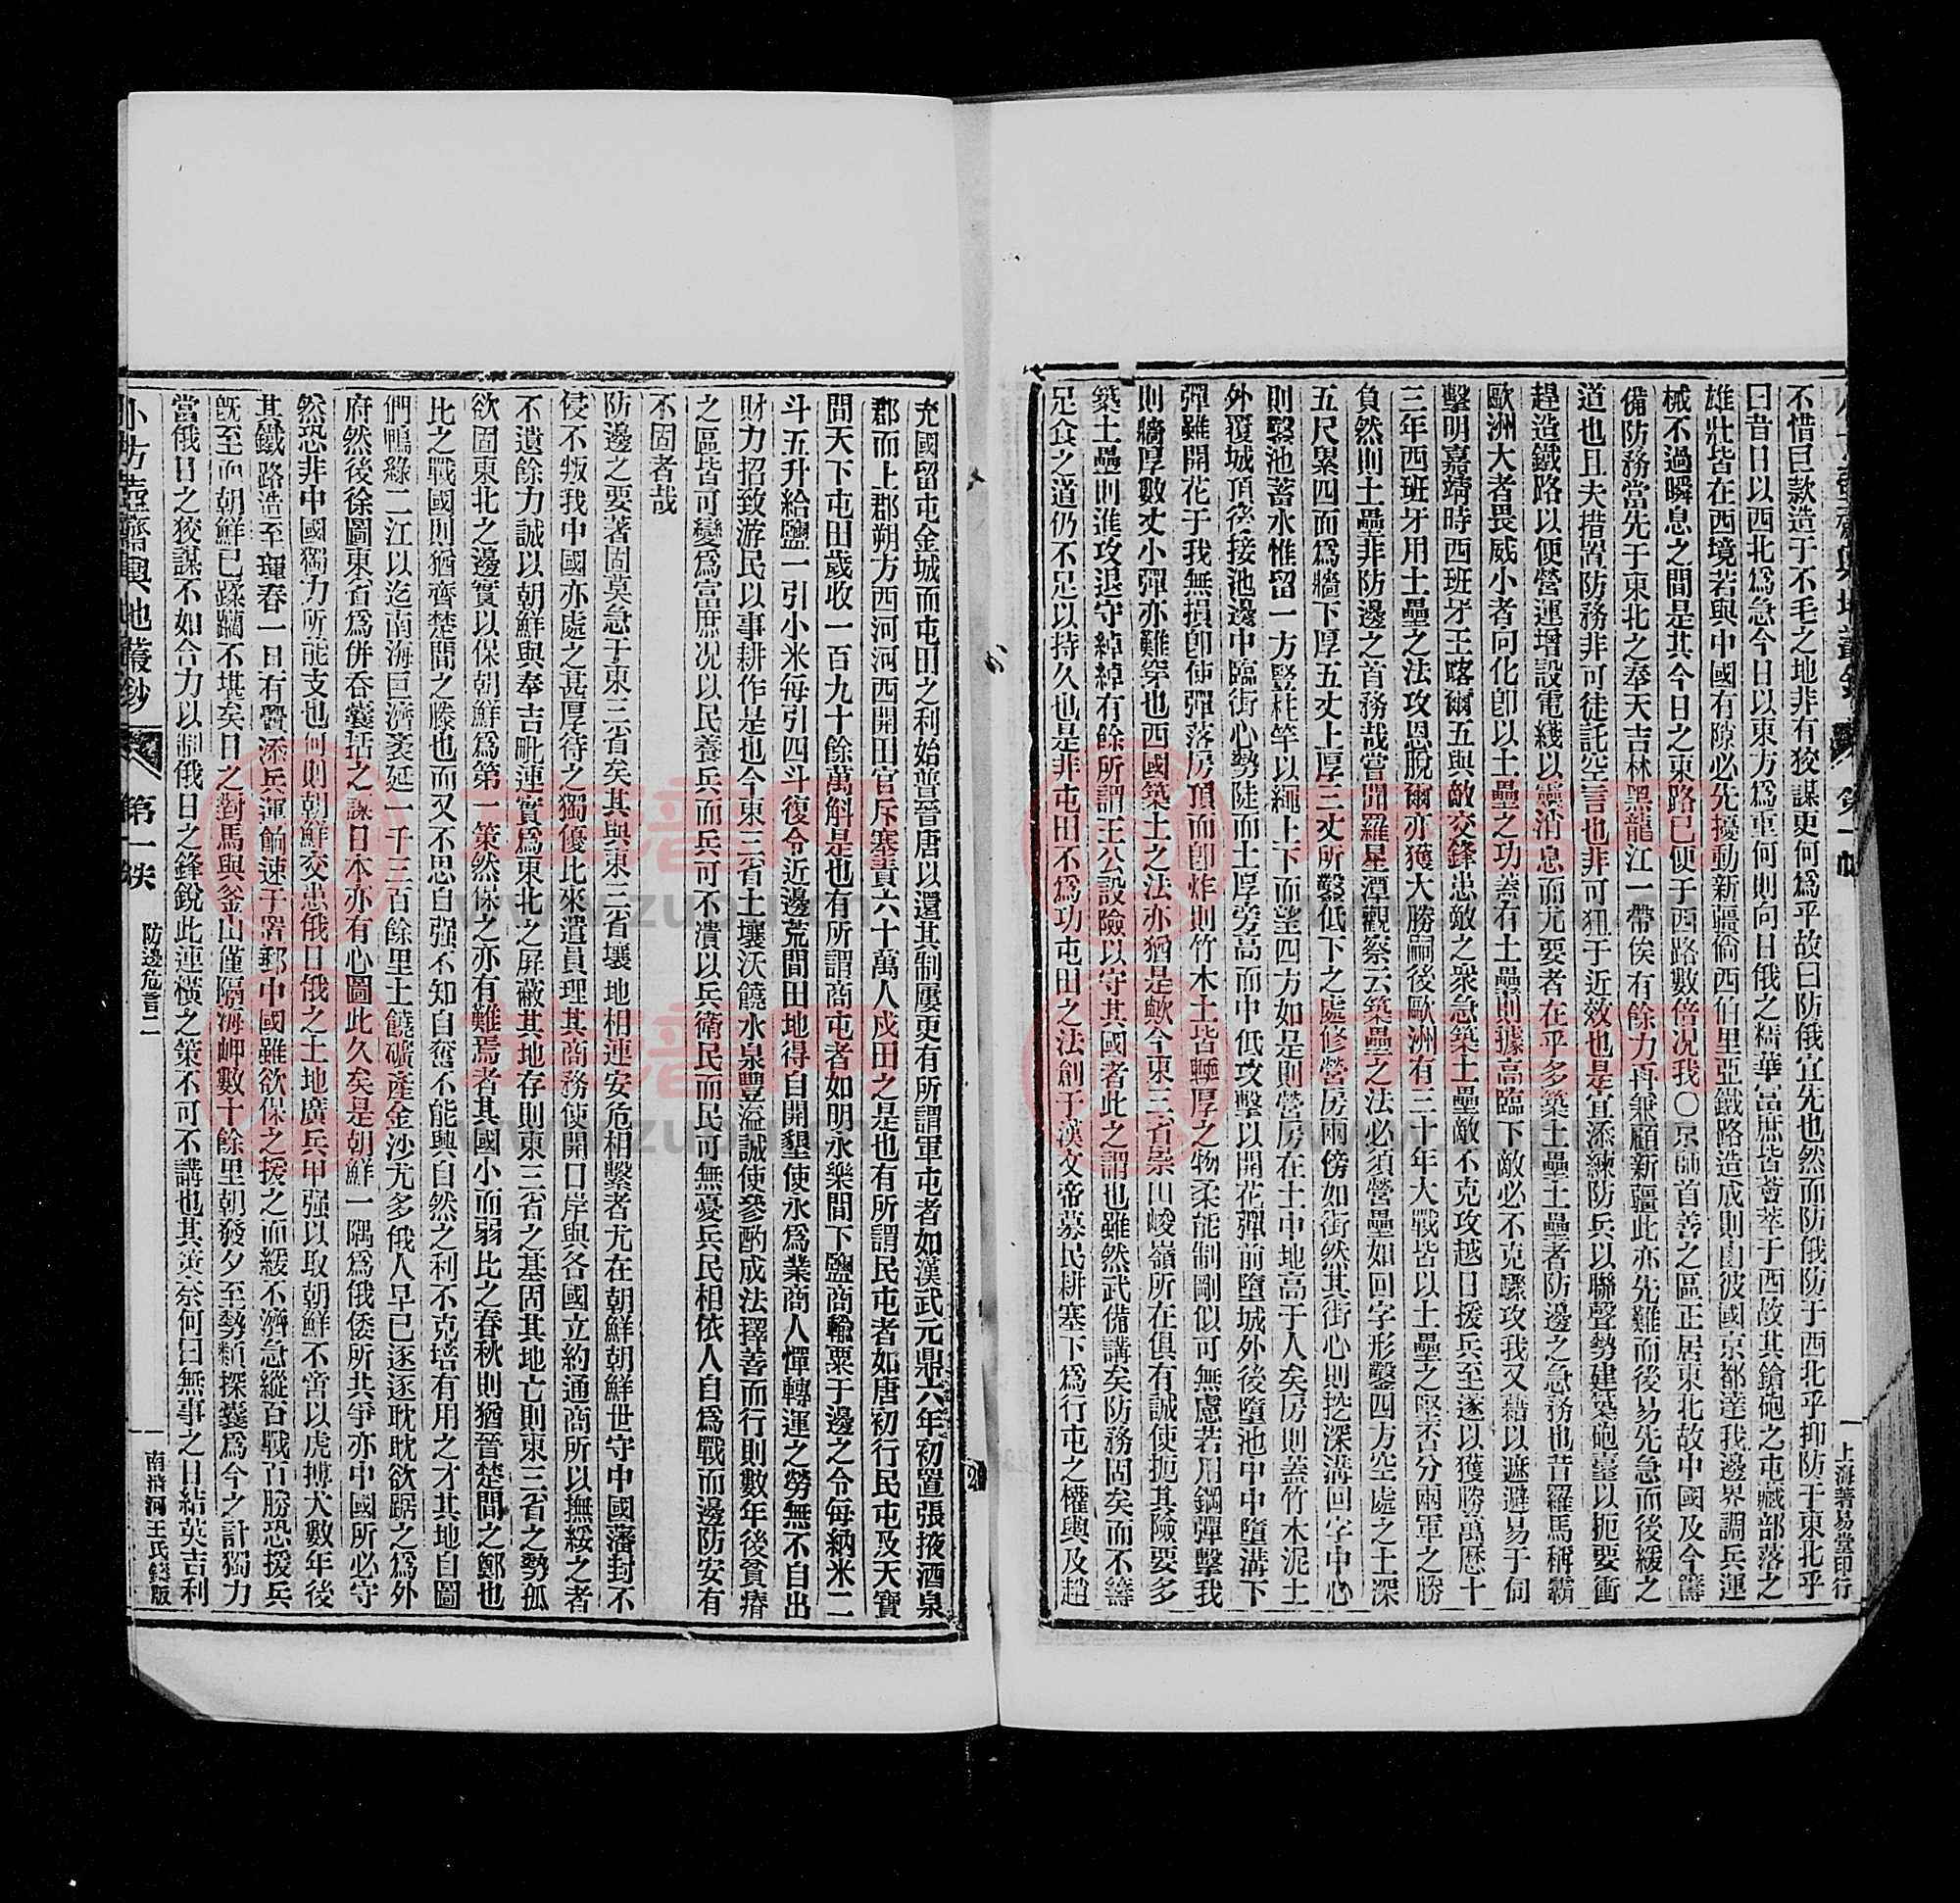 小方壺齋輿地叢鈔 第一帙 上海著易堂印行
不惜巨款造于不毛之地非有狡謀更何爲乎故曰防俄宜先也然而防俄防于西北乎抑防于東北乎
曰昔日以西北爲急今日以東方爲重何則向日俄之精華富庶皆薈萃于西故其鎗砲之屯藏部落之
雄壯皆在西境若與中國有隙必先擾動新疆倘西伯里亞鐵路造成則由彼國京都達我邊界調兵運
械不過瞬息之間是其今日之東路已便于西路數倍况我〇京師首善之區正居東北故中國及今籌
備防務當先于東北之奉天吉林黑龍江一帶俟有餘力再兼顧新疆此亦先難而後易先急而後緩之
道也且夫措置防務非可徒託空言也非可狃于近效也是宜添練防兵以聯聲勢建築砲臺以扼要衝
趕造鐵路以便營運增設電綫以靈消息而尤要者在乎多築土壘土壘者防邊之急務也昔羅馬稱霸
歐洲大者畏威小者向化卽以土壘之功蓋有土壘則據高臨下敵必不克驟攻我又藉以遮避易于伺
擊明嘉靖時西班牙王喀爾五與敵交鋒患敵之衆急築土壘敵不克攻越日援兵至遂以獲勝萬歷十
三年西班牙用土壘之法攻恩脫爾亦獲大勝嗣後歐洲有三十年大戰皆以土壘之堅否分兩軍之勝
負然則土壘非防邊之首務哉嘗聞羅星潭觀察云築壘之法必須營壘如回字形鑿四方空處之土深
五尺累四面爲牆下厚五丈上厚三丈所鑿低下之處修營房兩傍如街然其街心則挖深溝回字中心
則鑿池蓄水惟留一方豎柱竿以繩上下而望四方如是則營房在土中地高于人矣房則蓋竹木泥土
外覆城頂後接池邊中臨街心勢陡而土厚旁高而中低攻擊以開花彈前墮城外後墮池中中墮溝下
彈雖開花于我無損卽使彈落房頂而卽炸則竹木土皆軃厚之物柔能制剛似可無慮若用鋼彈擊我
則牆厚數丈小彈亦難穿也西國築土之法亦猶是歟今東三省崇山峻嶺所在俱有誠使扼其險要多
築土壘則進攻退守綽綽有餘所謂王公設險以守其國者此之謂也雖然武備講矣防務固矣而不籌
足食之道仍不足以持久也是非屯田不爲功屯田之法創于漢文帝募民耕塞下爲行屯之權輿及趙
充國留屯金城而屯田之利始普晉唐以還其制屢更有所謂軍屯者如漢武元鼎六年初置張掖酒泉
郡而上郡朔方西河河西開田官斥塞責六十萬人戍田之是也有所謂民屯者如唐初行民屯及天寶
間天下屯田歲收一百九十餘萬斛是也有所謂商屯者如明永樂間下鹽商輸粟于邊之令每納米二
斗五升給鹽一引小米每引四斗復令近邊荒間田地得自開墾使永爲業商人憚轉運之勞無不自出
財力招致游民以事耕作是也今東三省土壤沃饒水泉豐溢誠使參酌成法擇善而行則數年後貧瘠
之區皆可變爲富庶况以民養兵而兵可不潰以兵衛民而民可無憂兵民相依人自爲戰而邊防安有
不固者哉
防邊之要著固莫急于東三省矣其與東三省壤地相連安危相繫者尤在朝鮮朝鮮世守中國藩封不
侵不叛我中國亦處之甚厚待之獨優比來遣員理其商務使開口岸與各國立約通商所以撫綏之者
不遺餘力誠以朝鮮與奉吉毗連實爲東北之屏蔽其地存則東三省之基固其地亡則東三省之勢孤
欲固東北之邊實以保朝鮮爲第一策然保之亦有難焉者其國小而弱比之春秋則猶晉楚間之鄭也
比之戰國則猶齊楚間之滕也而又不思自强不知自奮不能興自然之利不克培有用之才其地自圖
們鴨綠二江以迄南海巨濟袤延一千三百餘里土饒礦產金沙尤多俄人早已逐逐耽耽欲踞之爲外
府然後徐圖東省爲併吞囊括之謀日本亦有心圖此久矣是朝鮮一隅爲俄倭所共爭亦中國所必守
然恐非中國獨力所能支也何則朝鮮交忠俄日俄之土地廣兵甲强以取朝鮮不啻以虎搏犬數年後
其鐵路造至琿春一日有釁添兵運餉速于置郵中國雖欲保之援之而緩不濟急縱百戰百勝恐援兵
旣至而朝鮮已蹂躪不堪矣日之對馬與釜山僅隔海岬數十餘里朝發夕至勢類探囊爲今之計獨力
當俄日之狡謀不如合力以制俄日之鋒銳此連橫之策不可不講也其策奈何曰無事之日結英吉利
小方壺齋輿地叢鈔 第一帙 防邊危言二 一 南清河王氏鑄版